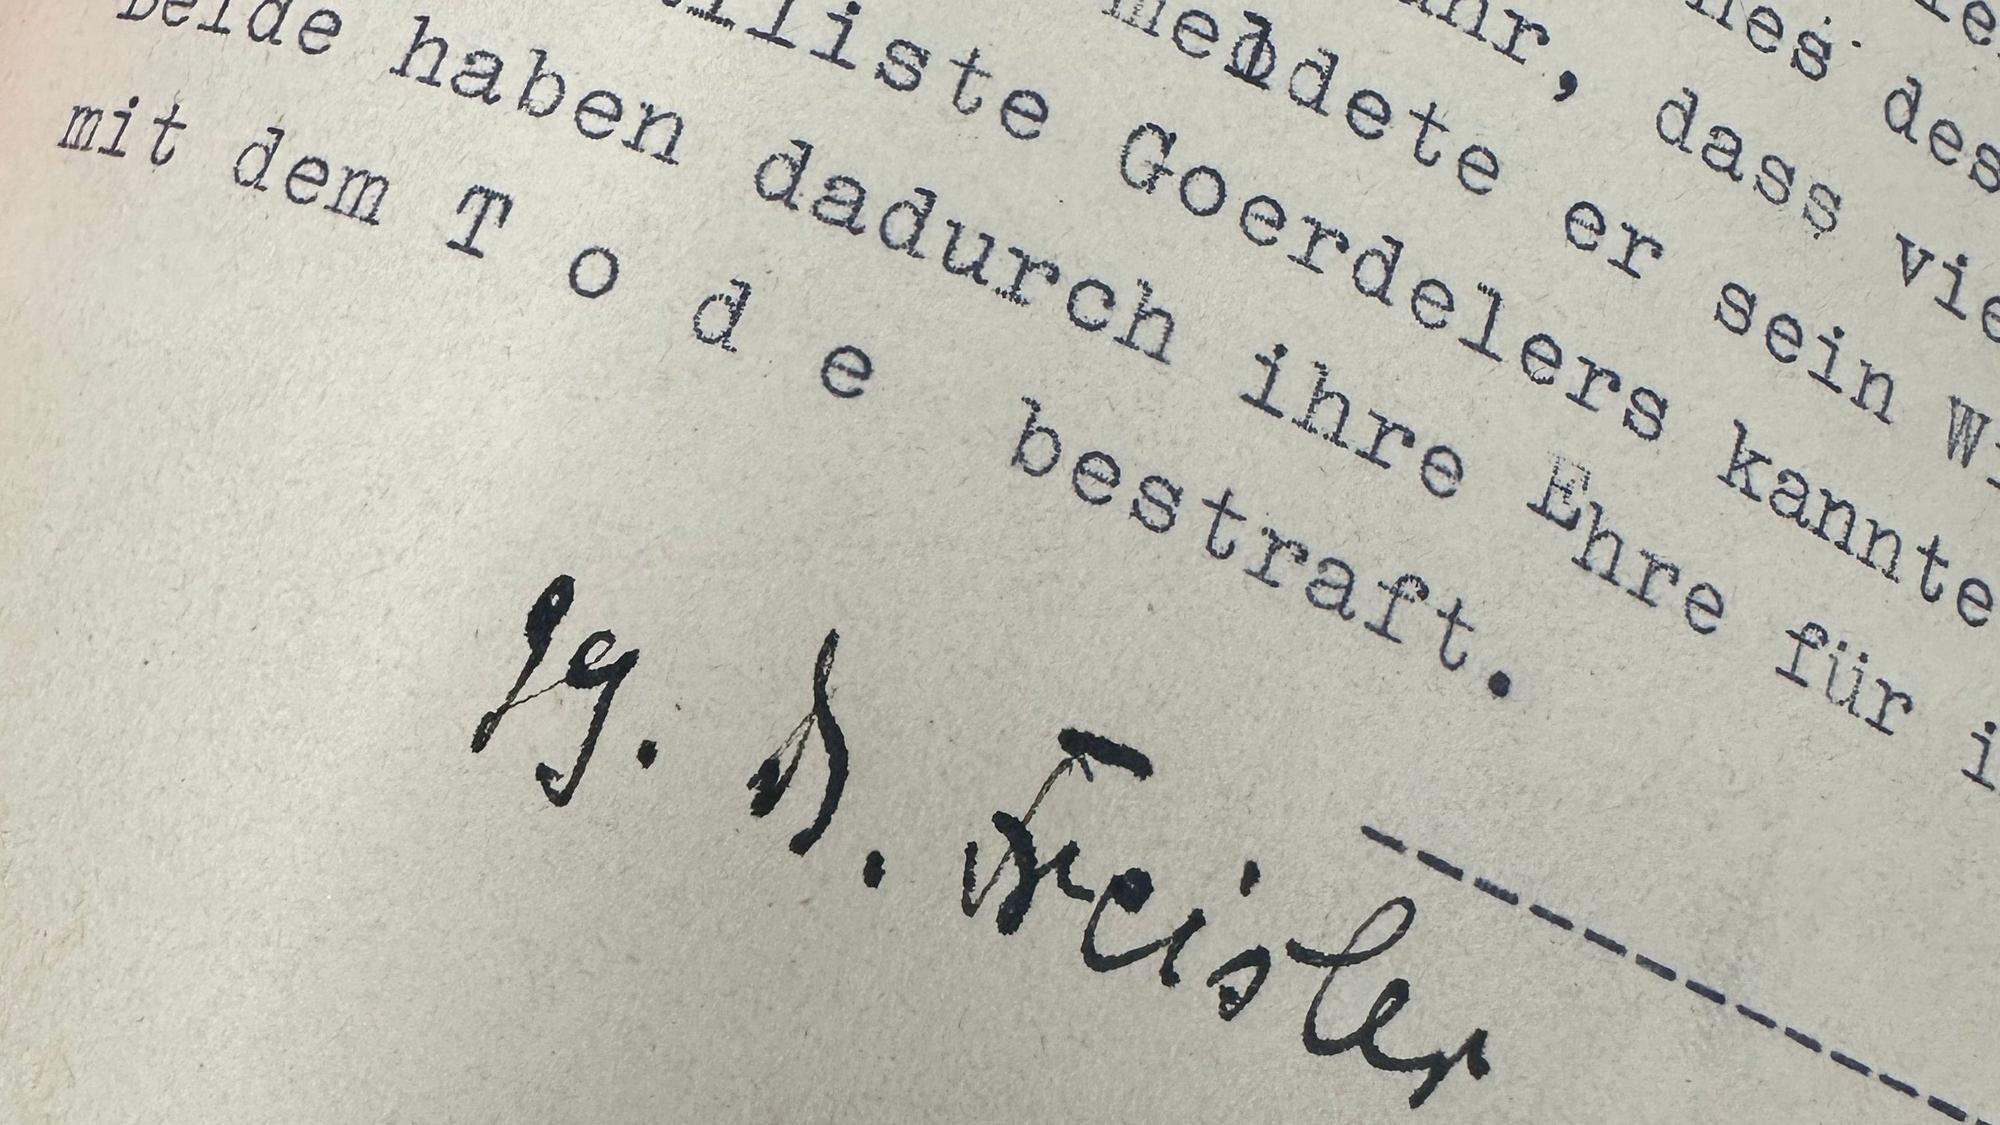 des
hr, dass
meldete er sein
liste Goerdelers kannte
Beide haben dadurch ihre Ehre für
mit dem T o d e bestraft.
Dr. Freisler